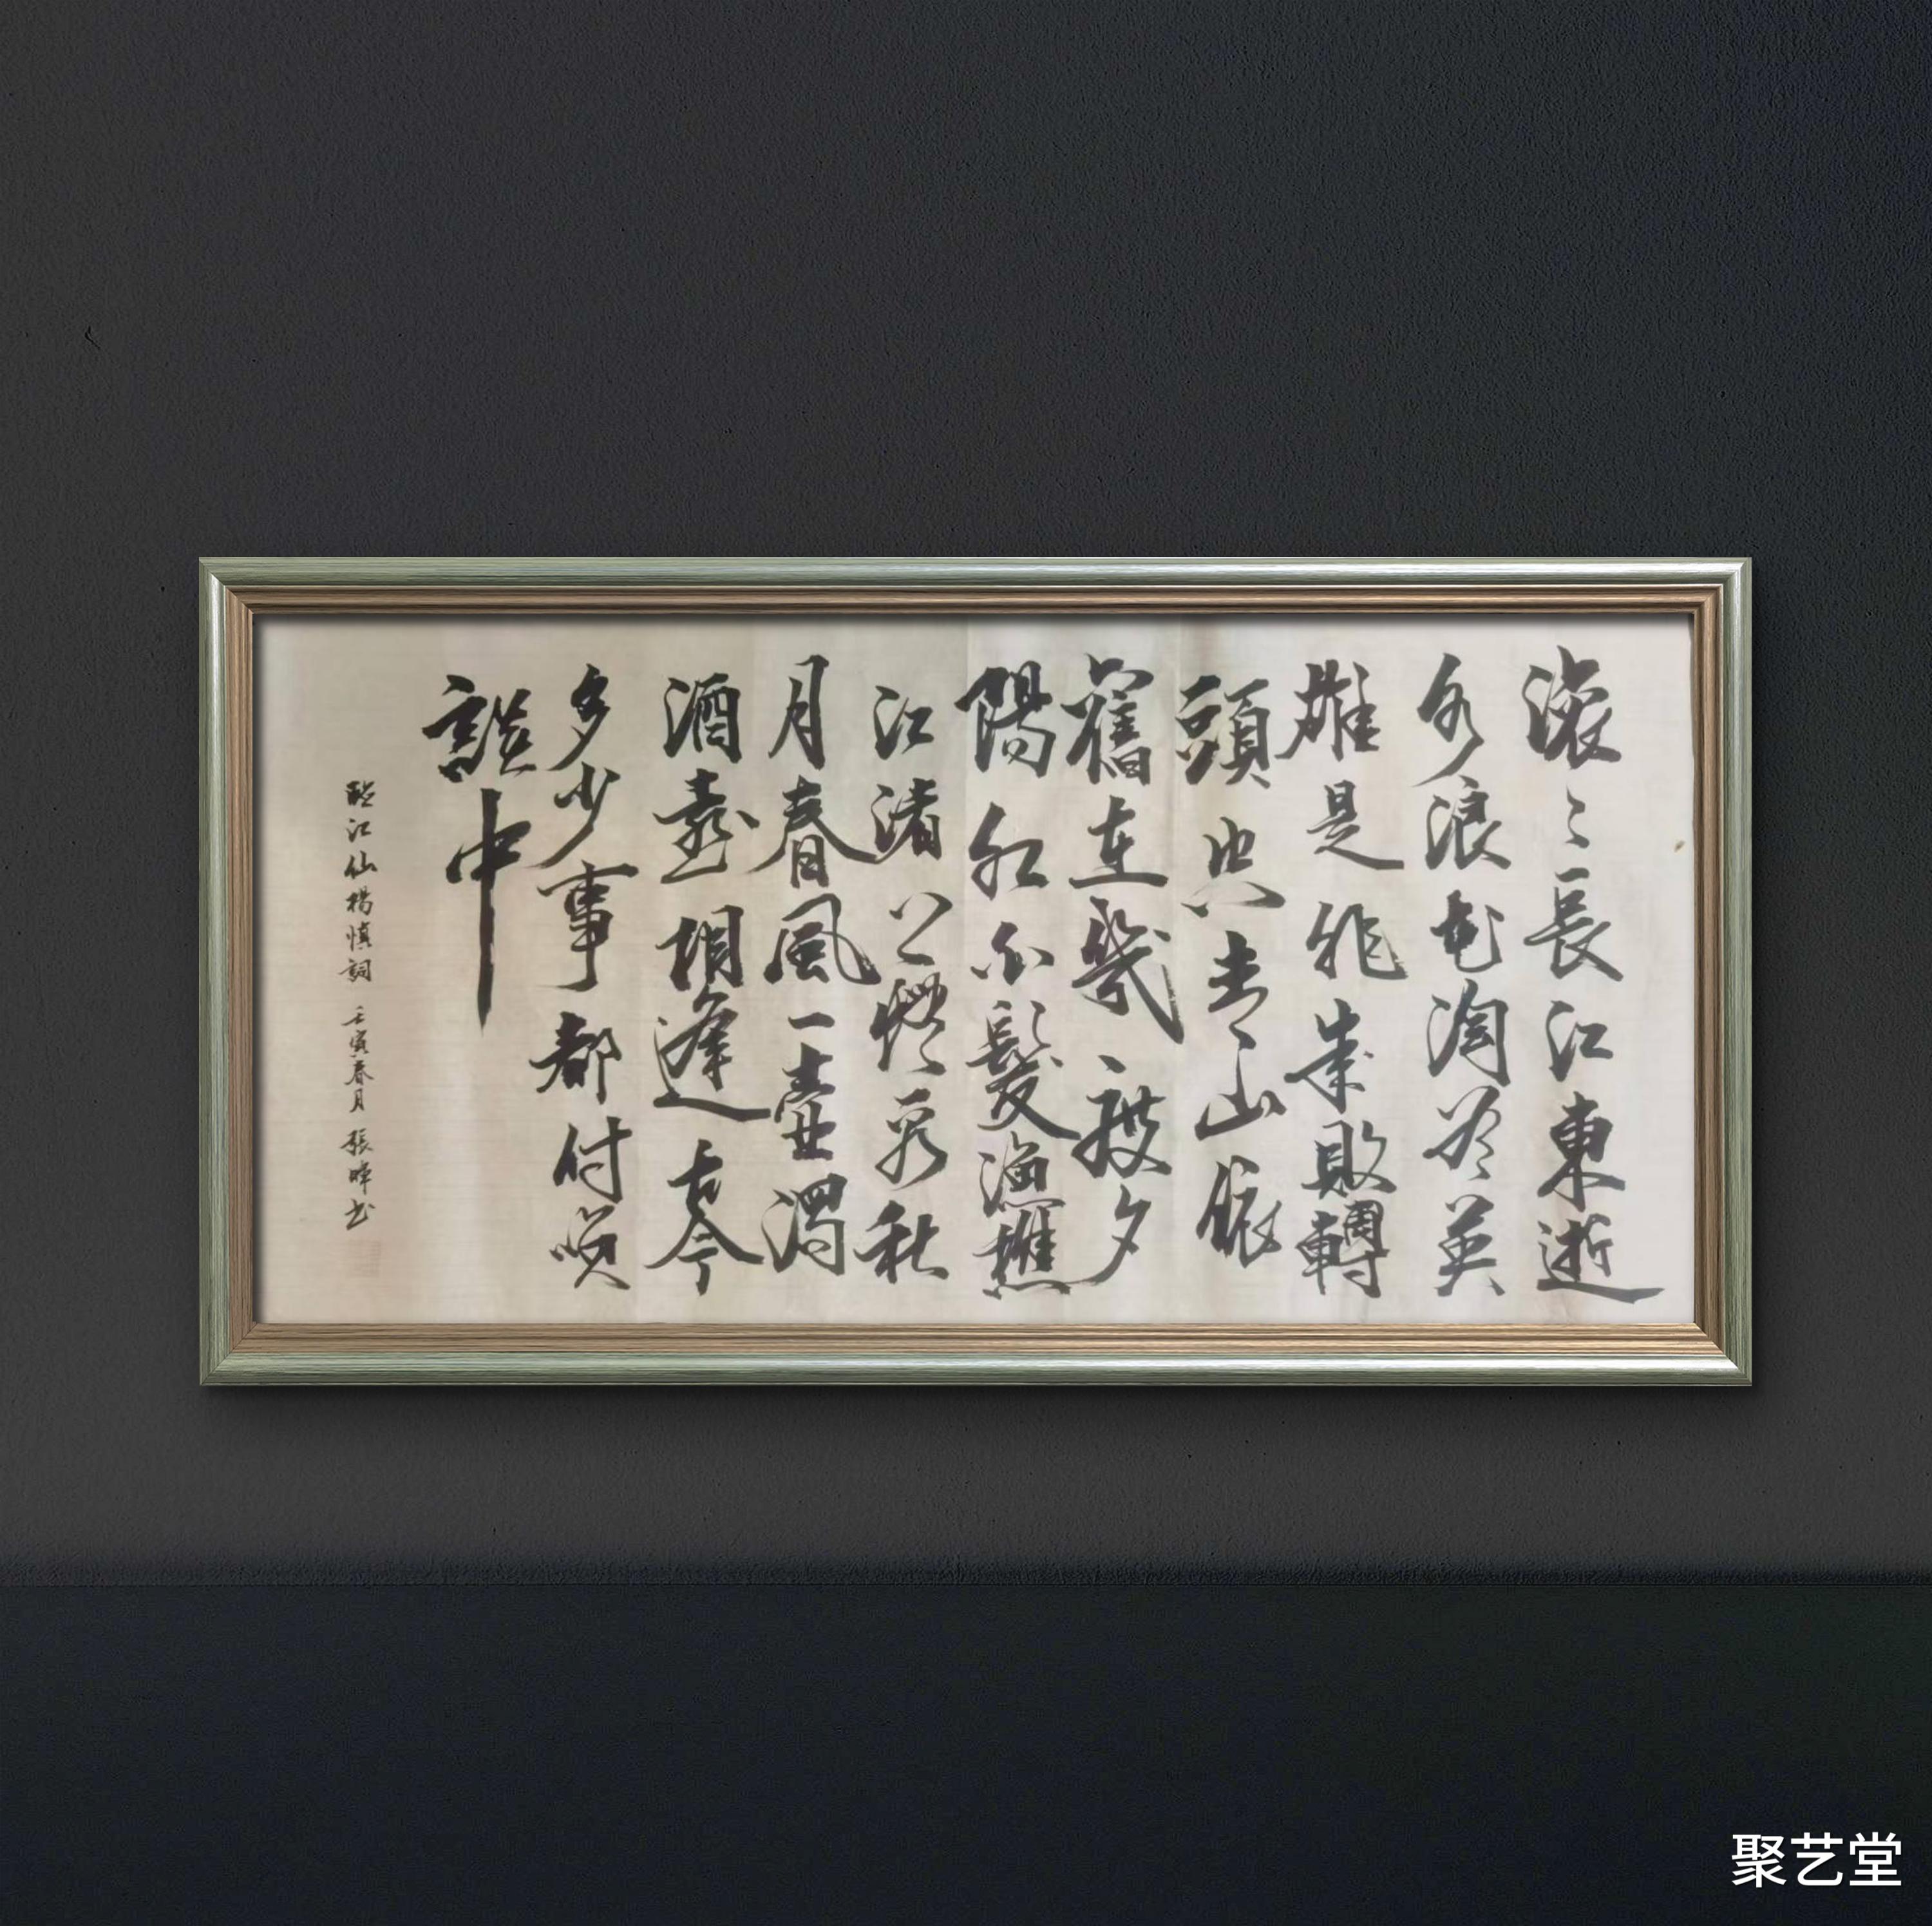 滚〻長江東逝
水浪花淘尽英
雄是非成敗轉
頭空青山依
舊在幾度夕
陽紅白髮漁樵
江渚上慣看秋
月春風一壺濁
酒喜相逢古今
多少事都付笑
談中
臨江仙楊慎詞 壬寅春月 張书
聚艺堂